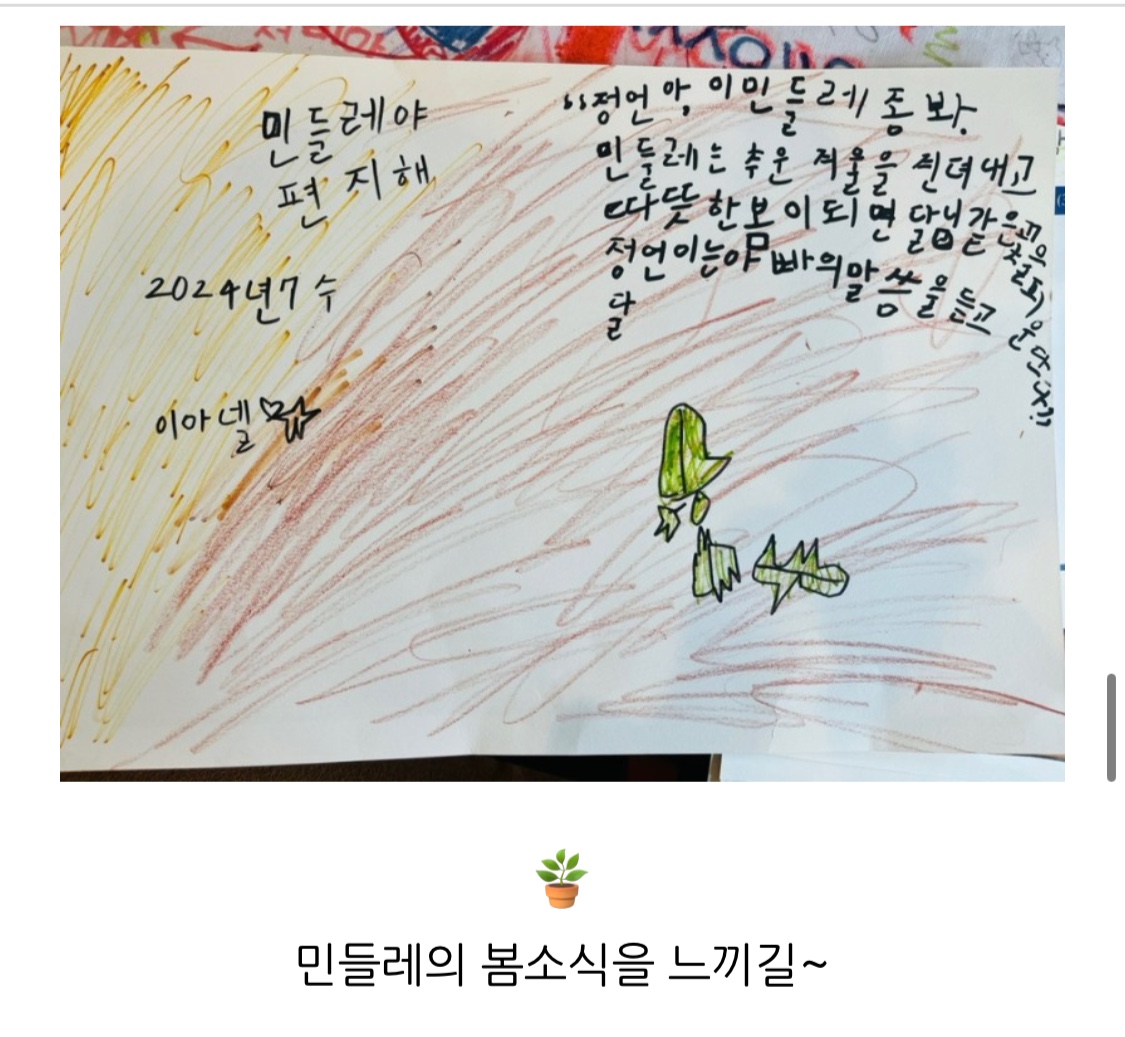 민들레야
편지해
2024년7수
이아넬
“정언아, 이민들레 종 봐.
민들레는 추운 겨울을 견뎌내고
따뜻한봄이되면 같은
정언이는아빠의말씀을듣고
달
민들레의 봄소식을 느끼길~